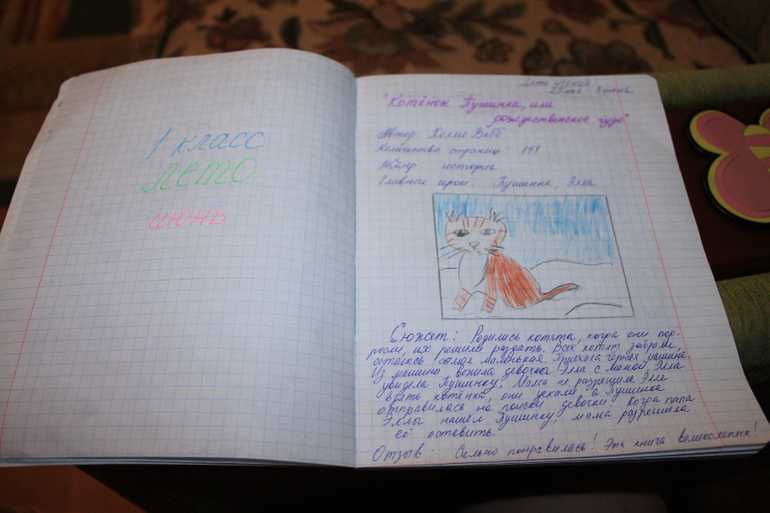 1 класс
лето
июнь
Дата чтения
"Котёнок Пушинка, или
рождественское чудо"
Автор Холли Вебб
Количество страниц 141
Жанр история
Главные герои: Пушинка, Элла
Сюжет: Родились котята, когда они под-
росли, их решили раздать. Всех котят забрали,
осталась самая маленькая. Приехала чёрная машина.
Из машины вышла девочка Элла с мамой. Элла
увидела Пушинку. Мама не разрешила Элле
взять котёнка, они уехали а Пушинка
отправилась на поиски девочки. Когда папа
Эллы нашёл Пушинку, мама разрешила
её оставить.
Отзыв: Сильно понравилась! Эта книга великолепна!